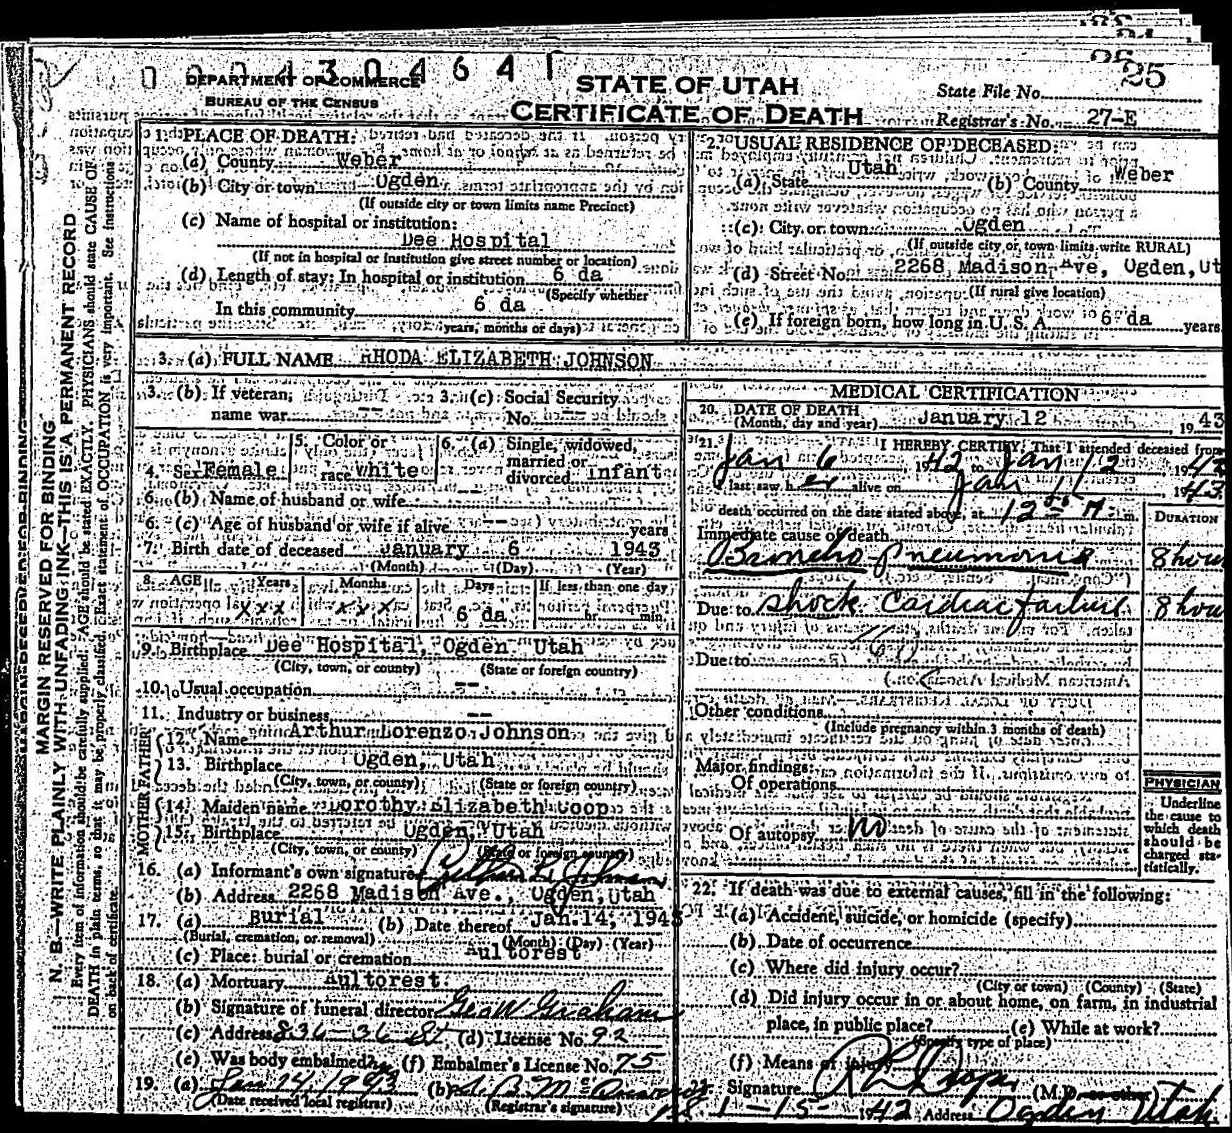 25
0 0 0 4 3 0 4 6 4 1
DEPARTMENT OF COMMERCE
BUREAU OF THE CENSUS
STATE OF UTAH
CERTIFICATE OF DEATH
State File No.
Registrar's No. 27-E
MARGIN RESERVED FOR BINDING
N. B.—WRITE PLAINLY WITH UNFADING INK—THIS IS A PERMANENT RECORD
Every item of information should be carefully supplied. AGE should be stated EXACTLY. PHYSICIANS should state CAUSE OF
DEATH in plain terms, so that it may be properly classified. Exact statement of OCCUPATION is very important. See instructions
on back of certificate.
1. PLACE OF DEATH:
(a) County Weber
(b) City or town Ogden
(If outside city or town limits name Precinct)
(c) Name of hospital or institution:
Dee Hospital
(If not in hospital or institution give street number or location)
(d) Length of stay: In hospital or institution 6 da
(Specify whether
In this community 6 da
years, months or days)
2. USUAL RESIDENCE OF DECEASED:
(a) State Utah (b) County Weber
(c) City or town Ogden
(If outside city or town limits write RURAL)
(d) Street No. 2268 Madison Ave, Ogden, Ut
(If rural give location)
(e) If foreign born, how long in U. S. A. 6 da years
3. (a) FULL NAME RHODA ELIZABETH JOHNSON
3. (b) If veteran, name war -- 3. (c) Social Security No. --
4. Sex Female 5. Color or race White 6. (a) Single, widowed, married or divorced Infant
6. (b) Name of husband or wife --
6. (c) Age of husband or wife if alive -- years
7. Birth date of deceased January 6 1943
(Month) (Day) (Year)
8. AGE Years Months Days If less than one day
xxx xxx 6 da hr. min.
9. Birthplace Dee Hospital, Ogden Utah
(City, town, or county) (State or foreign country)
10. Usual occupation --
11. Industry or business --
FATHER
12. Name Arthur Lorenzo Johnson
13. Birthplace Ogden, Utah
(City, town, or county) (State or foreign country)
MOTHER
14. Maiden name Dorothy Elizabeth Coop
15. Birthplace Ogden, Utah
(City, town, or county) (State or foreign country)
16. (a) Informant's own signature Arthur L. Johnson
(b) Address 2268 Madison Ave., Ogden, Utah
17. (a) Burial (b) Date thereof Jan. 14, 1943
(Burial, cremation, or removal) (Month) (Day) (Year)
(c) Place: burial or cremation Aultorest
18. (a) Mortuary Aultorest
(b) Signature of funeral director Geo W Graham
(c) Address 836-36 St (d) License No. 92
(e) Was body embalmed? (f) Embalmer's License No. 75
19. (a) Jan 14, 1943 (b)
(Date received local registrar) (Registrar's signature)
MEDICAL CERTIFICATION
20. DATE OF DEATH January 12 1943
(Month, day and year)
21. I HEREBY CERTIFY, That I attended deceased from
Jan 6 1942 to Jan 12 1943
I last saw her alive on Jan 11 1943
death occurred on the date stated above, at 12 M. m.
DURATION
Immediate cause of death
Broncho-pneumonia 8 hours
Due to shock cardiac failure 8 hours
Due to
Other conditions
(Include pregnancy within 3 months of death)
Major findings:
Of operations
Of autopsy no
PHYSICIAN
Underline
the cause to
which death
should be
charged sta-
tistically.
22. If death was due to external causes, fill in the following:
(a) Accident, suicide, or homicide (specify)
(b) Date of occurrence
(c) Where did injury occur?
(City or town) (County) (State)
(d) Did injury occur in or about home, on farm, in industrial
place, in public place? (e) While at work?
(Specify type of place)
(f) Means of injury
Signature (M.D. or other)
1-15-1942 Address Ogden Utah